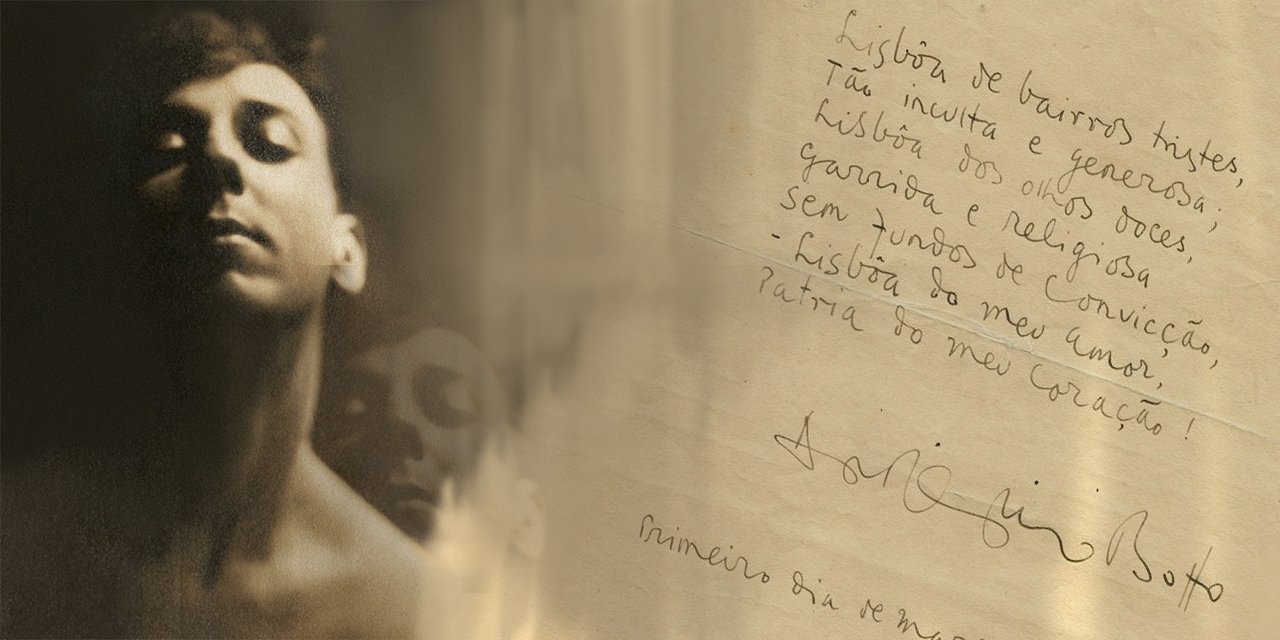 Lisbôa de bairros tristes,
Tão inculta e generosa;
Lisbôa dos olhos doces,
garrida e religiosa
sem fundos de convicção,
- Lisbôa do meu amor,
Patria do meu coração!
António Botto
Primeiro dia de